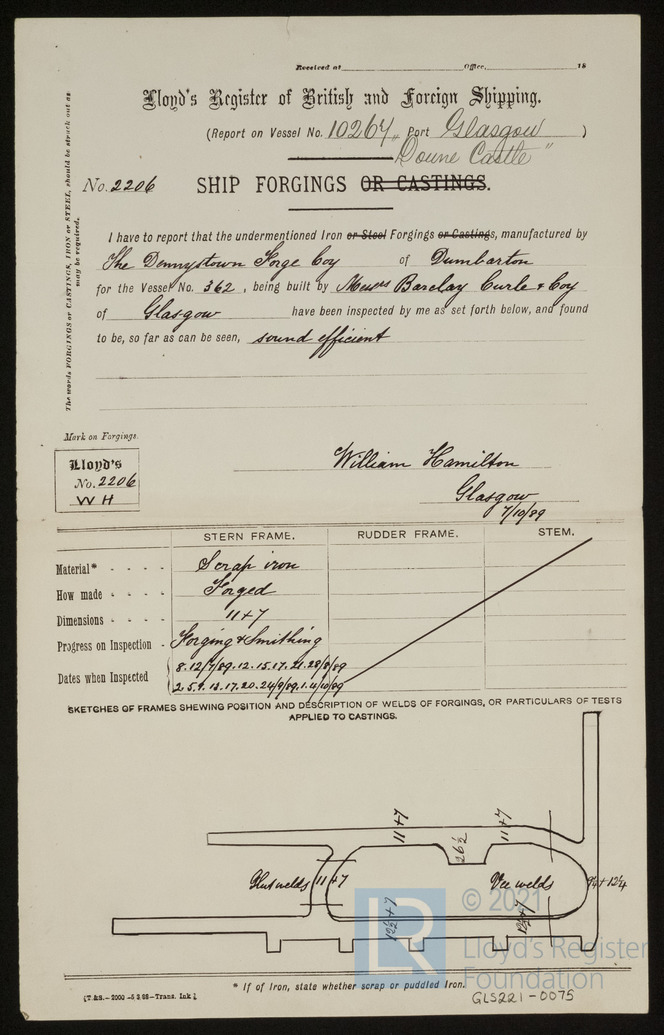 Received at Office, 18
Lloyd's Register of British and Foreign Shipping.
(Report on Vessel No. 10267, Port Glasgow )
"Doune Castle"
No. 2206 SHIP FORGINGS OR CASTINGS.
The words FORGINGS or CASTINGS, IRON or STEEL, should be struck out as
may be required.
I have to report that the undermentioned Iron or Steel Forgings or Castings, manufactured by
The Dennystown Forge Coy of Dumbarton
for the Vessel No. 362, being built by Messrs Barclay Curle & Coy
of Glasgow have been inspected by me as set forth below, and found
to be, so far as can be seen, sound efficient
Mark on Forgings.
Lloyd's
No. 2206
W H
William Hamilton
Glasgow
7/10/89
STERN FRAME. RUDDER FRAME. STEM.
Material* - - - - Scrap iron
How made - - - - Forged
Dimensions - - - - 11 + 7
Progress on Inspection - Forging & Smithing
Dates when Inspected 8.12/7/89.12.15.17.21.28/8/89
2.5.9.13.17.20.24/9/89.1.4/10/89
SKETCHES OF FRAMES SHEWING POSITION AND DESCRIPTION OF WELDS OF FORGINGS, OR PARTICULARS OF TESTS
APPLIED TO CASTINGS.
11+7
11+7
26½
Glut welds 11+7
Vee welds
9¼+12¼
12½+7
12½+7
© 2021
LR
Lloyd's Register
Foundation
* If of Iron, state whether scrap or puddled Iron.
[T & S.—2000—5 2 88—Trans. Ink.]
GLS221-0075